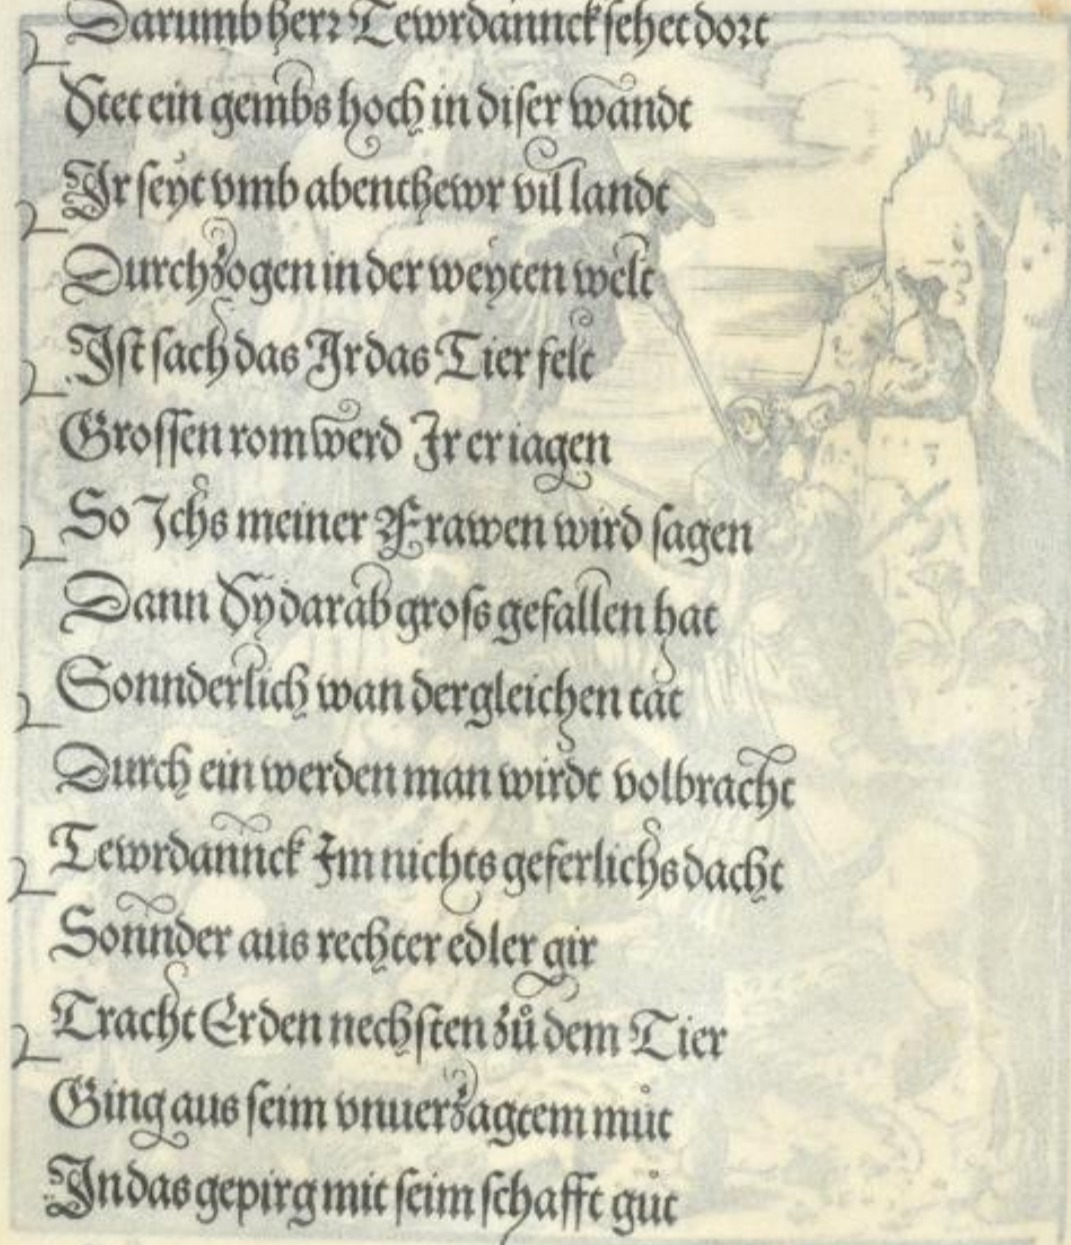 Darumb herr Tewrdannck sehet dort
Stet ein gembs hoch in diser wandt
Ir seyt vmb abenthewr vil landt
Durchzogen in der weyten welt
Ist sach das Ir das Tier felt
Grossen rom werd Ir eriagen
So Ichs meiner Frawen wird sagen
Dann Sy darab gross gefallen hat
Sonnderlich wan dergleichen tat
Durch ein werden man wirdt volbracht
Tewrdannck Im nichts geferlichs dacht
Sonnder aus rechter edler gir
Tracht Er den nechsten zů dem Tier
Ging aus seim vnuerzagtem můt
In das gepirg mit seim schafft gůt